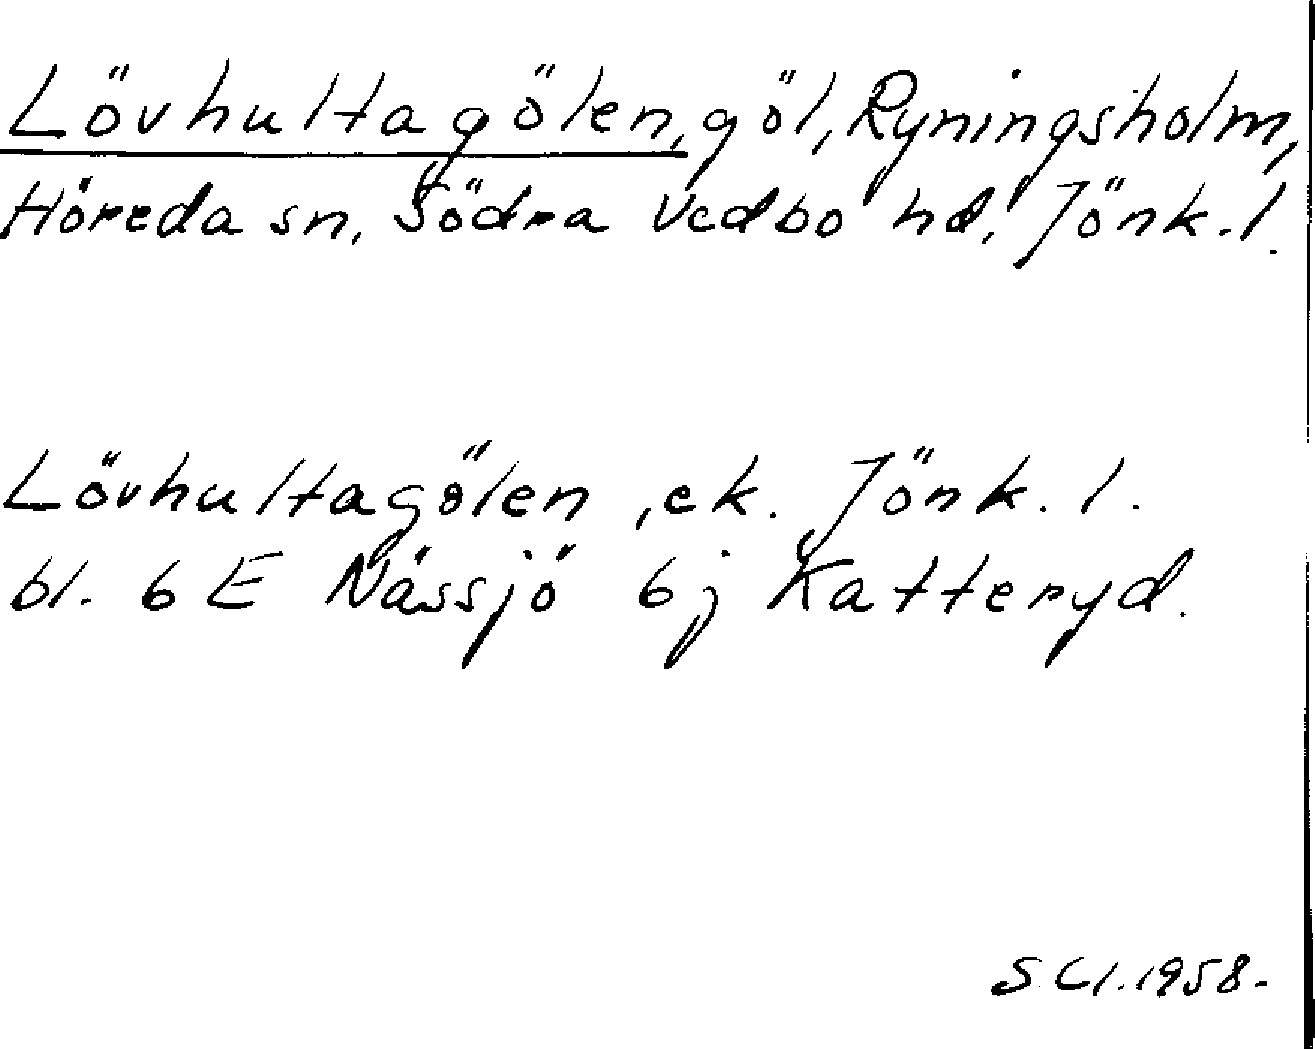 Lövhultagölen, göl, Ryningsholm,
Höreda sn, Södra Vedbo hd, Jönk. l.
Lövhultagölen, ek. Jönk. l.
bl. 6 E Nässjö 6j Katteryd.
S Cl. 1958.